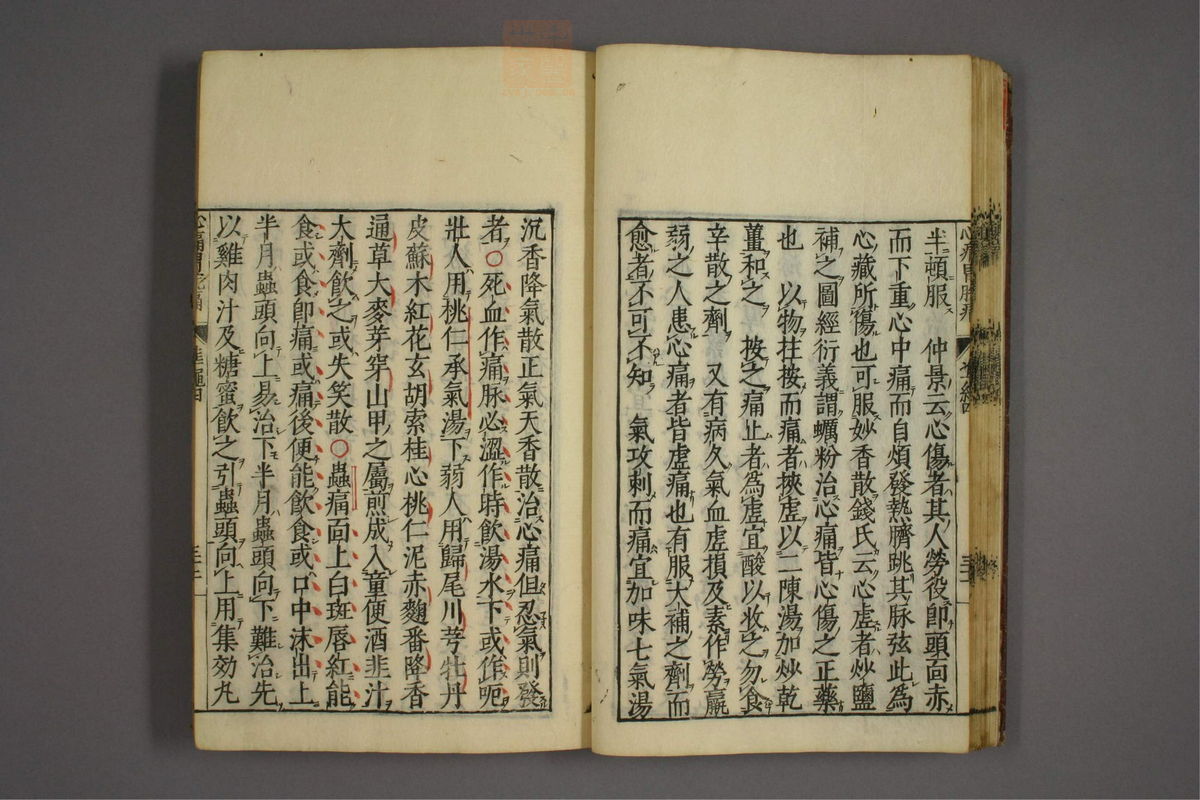 半頓服　仲景云心傷者其人勞役即頭面赤
而下重心中痛而自煩發熱臍跳其脉弦此為
心藏所傷也可服妙香散錢氏云心虛者炒鹽
補之圖經衍義謂蠣粉治心痛皆心傷之正藥
也　以物拄按而痛者挾虛以二陳湯加炒乾
薑和之　按之痛止者為虛宜酸以收之勿食
辛散之劑　又有病久氣血虛損及素作勞羸
弱之人患心痛者皆虛痛也有服大補之劑而
愈者不可不知　氣攻刺而痛宜加味七氣湯
沉香降氣散正氣天香散治心痛但忍氣則發
者○死血作痛脉必澀作時飲湯水下或作呃
壯人用桃仁承氣湯下弱人用歸尾川芎牡丹
皮蘇木紅花玄胡索桂心桃仁泥赤麴番降香
通草大麥芽穿山甲之屬煎成入童便酒韭汁
大劑飲之或失笑散○蟲痛面上白斑唇紅能
食或食即痛或痛後便能飲食或口中沫出上
半月蟲頭向上易治下半月蟲頭向下難治先
以雞肉汁及糖蜜飲之引蟲頭向上用集効丸